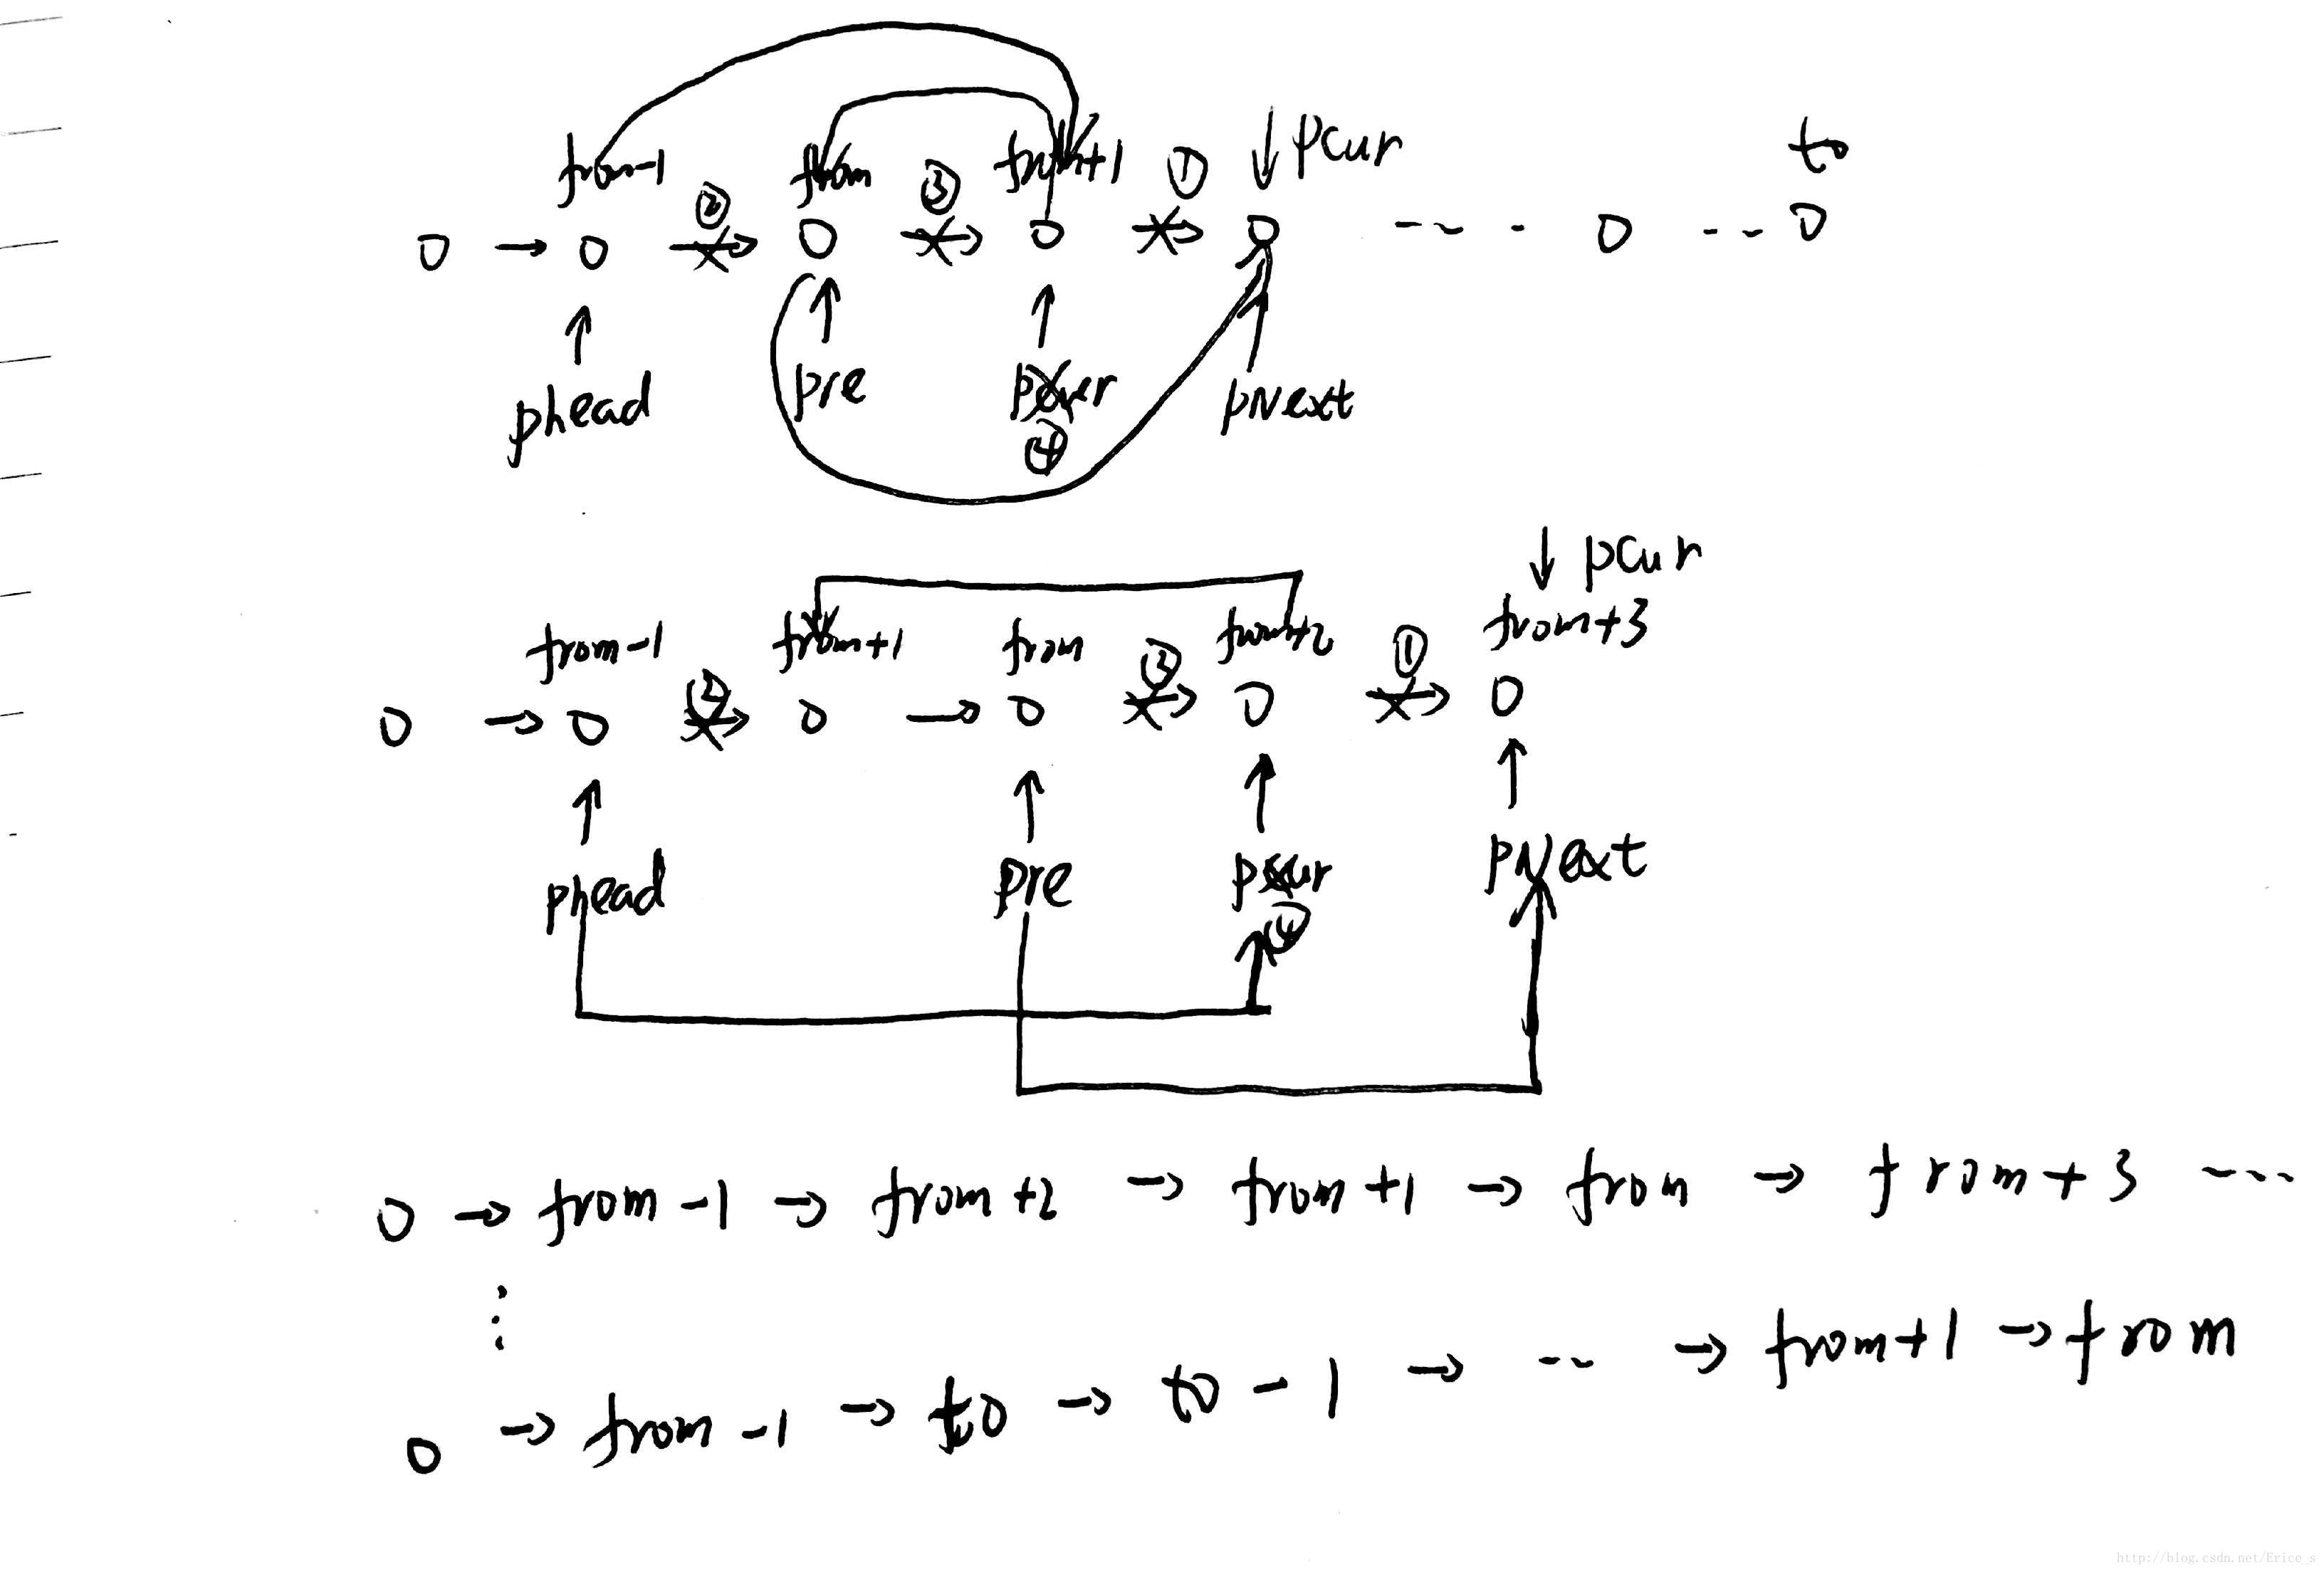 from-1 from from+1 ↓ pcur to
② ③ ①
0 → 0 → 0 → 0 → 0 -- - 0 -- 0
↑ ↑ ↑ ↑
phead pre pcur pNext
④
↓ pcur
from-1 from+1 from from+2 from+3
② ③ ①
0 → 0 → 0 → 0 → 0 → 0
↑ ↑ ↑ ↑
phead pre pcur pNext
④
0 → from-1 → from+2 → from+1 → from → from+3 ----
⋮
0 → from-1 → to → to-1 → -- → from+1 → from
http://blog.csdn.net/Erice_s